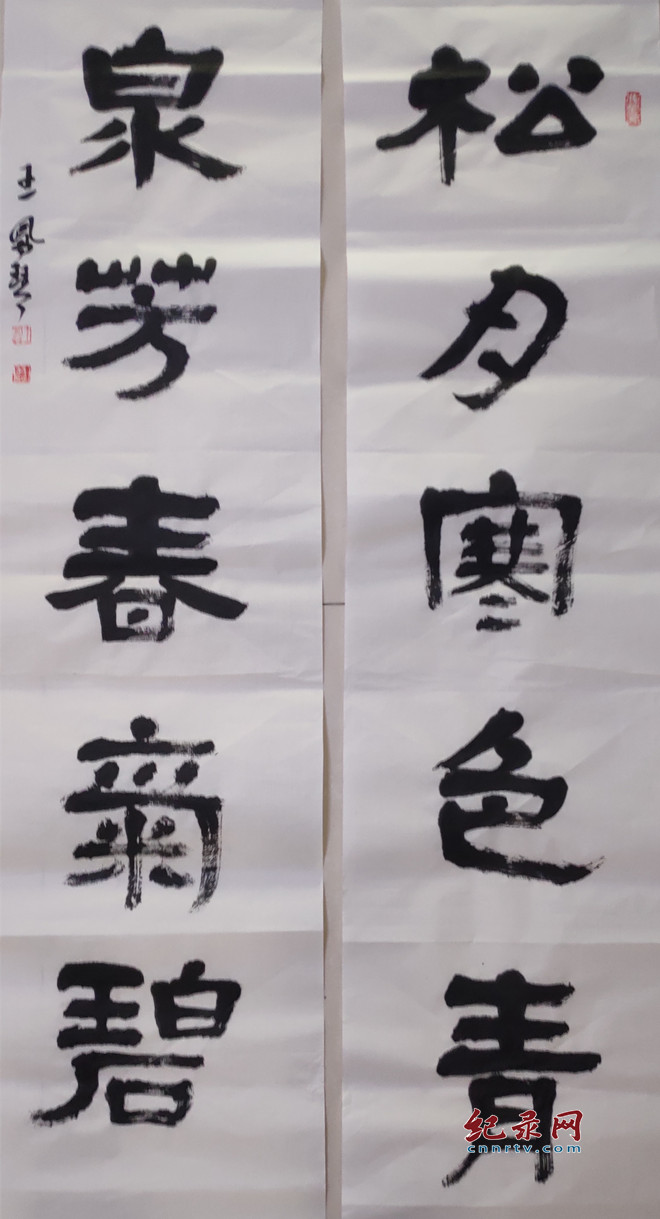 松月寒色青
泉芳春氣碧
王鳳琴
纪录网
cnnrtv.com